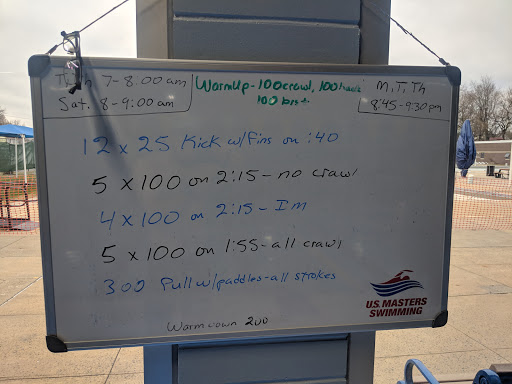 T, Th 7-8:00am
Sat. 8-9:00am
WarmUp-100crawl, 100back
100brst
M, T, Th
8:45-9:30pm
12 x 25 Kick w/Fins on :40
5 x 100 on 2:15-no crawl
4 x 100 on 2:15-Im
5 x 100 on 1:55-all crawl
300 Pull w/paddles-all strokes
Warm down 200
U.S. MASTERS
SWIMMING